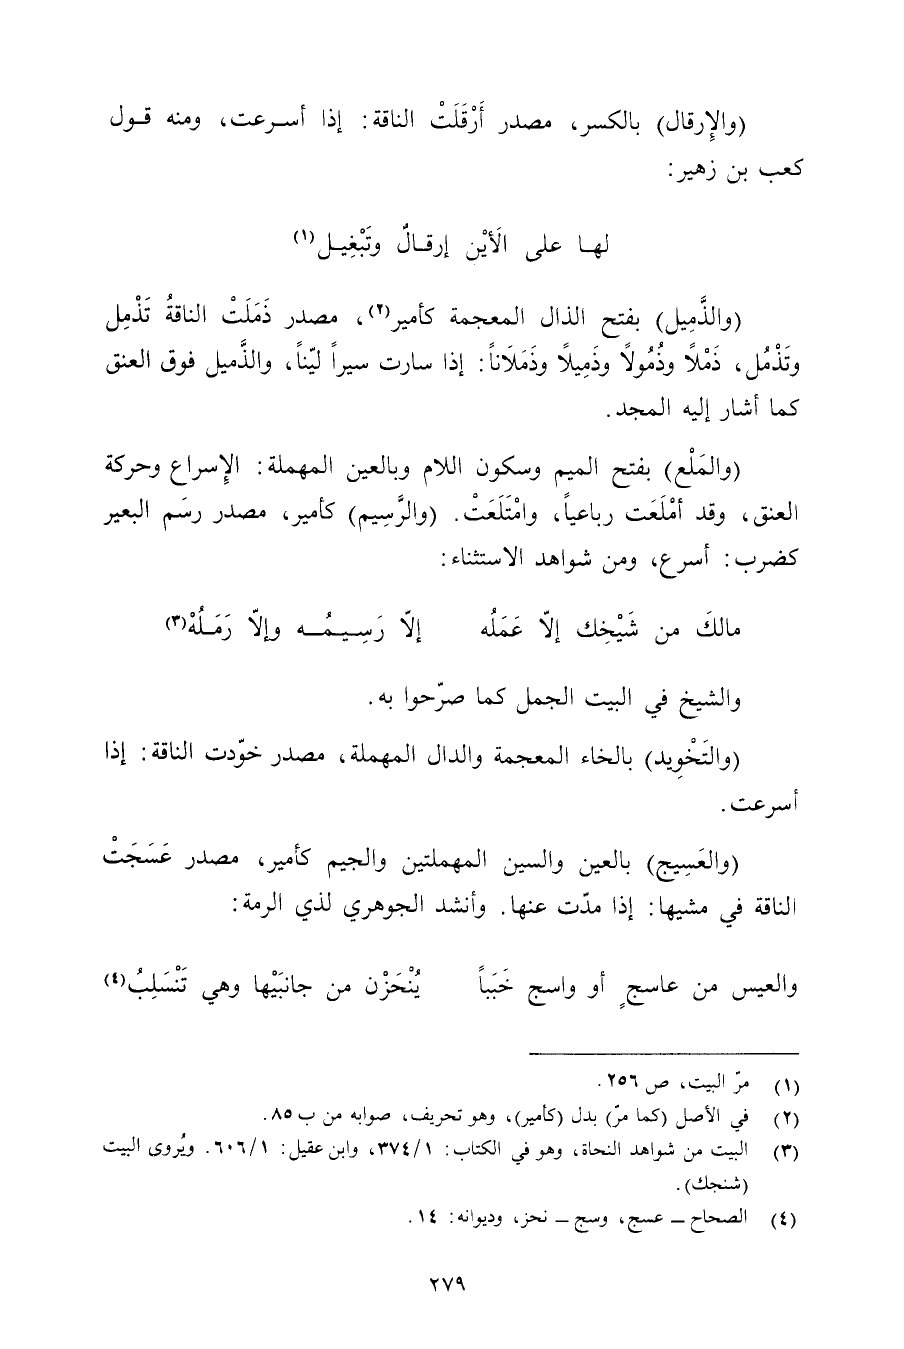 (والإِرقال) بالكسر، مصدر أَرْقَلَتْ الناقة: إذا أسـرعت، ومنه قـول
كعب بن زهير:
لهـا على الَأيْن إرقـالٌ وتَبْغِيـل(١)
(والذَّمِيل) بفتح الذال المعجمة كأمير(٢)، مصدر ذَمَلَتْ الناقةُ تَذْمِل
وتَذْمُل، ذَمْلاً وذُمُولاً وذَمِيلاً وذَمَلَاناً: إذا سارت سيراً ليّناً، والذَّميل فوق العنق
كما أشار إليه المجد.
(والمَلْع) بفتح الميم وسكون اللام وبالعين المهملة: الإِسراع وحركة
العنق، وقد أمْلَعَت رباعياً، وامْتَلَعَتْ. (والرَّسِيم) كأمير، مصدر رسَم البعير
كضرب: أسرع، ومن شواهد الاستثناء:
مالكَ من شَيْخِك إلاّ عَمَلُه إلاّ رَسِـيـمُـــه وإلاّ رَمَـلُهْ(٣)
والشيخ في البيت الجمل كما صرّحوا به.
(والتَخْوِيد) بالخاء المعجمة والدال المهملة، مصدر خوّدت الناقة: إذا
أسرعت.
(والعَسِيج) بالعين والسين المهملتين والجيم كأمير، مصدر عَسَجَتْ
الناقة في مشيها: إذا مدّت عنها. وأنشد الجوهري لذي الرمة:
والعيس من عاسجٍ أو واسج خَبَباً يُنْحَزْن من جانبَيْها وهي تَنْسَلِبُ(٤)
(١) مرّ البيت، ص ٢٥٦.
(٢) في الأصل (كما مرّ) بدل (كأمير)، وهو تحريف، صوابه من ب ٨٥.
(٣) البيت من شواهد النحاة، وهو في الكتاب: ٣٧٤/١، وابن عقيل: ٦٠٦/١. ويُروى البيت
(شنجك).
(٤) الصحاح ــ عسج، وسج ــ نحز، وديوانه: ١٤.
٢٧٩